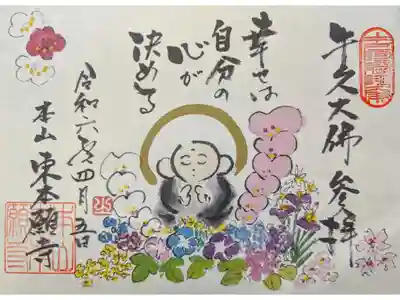 牛久大佛 參拝
幸せは
自分の
心が
決める
令和六年四月五日
本山 東本願寺